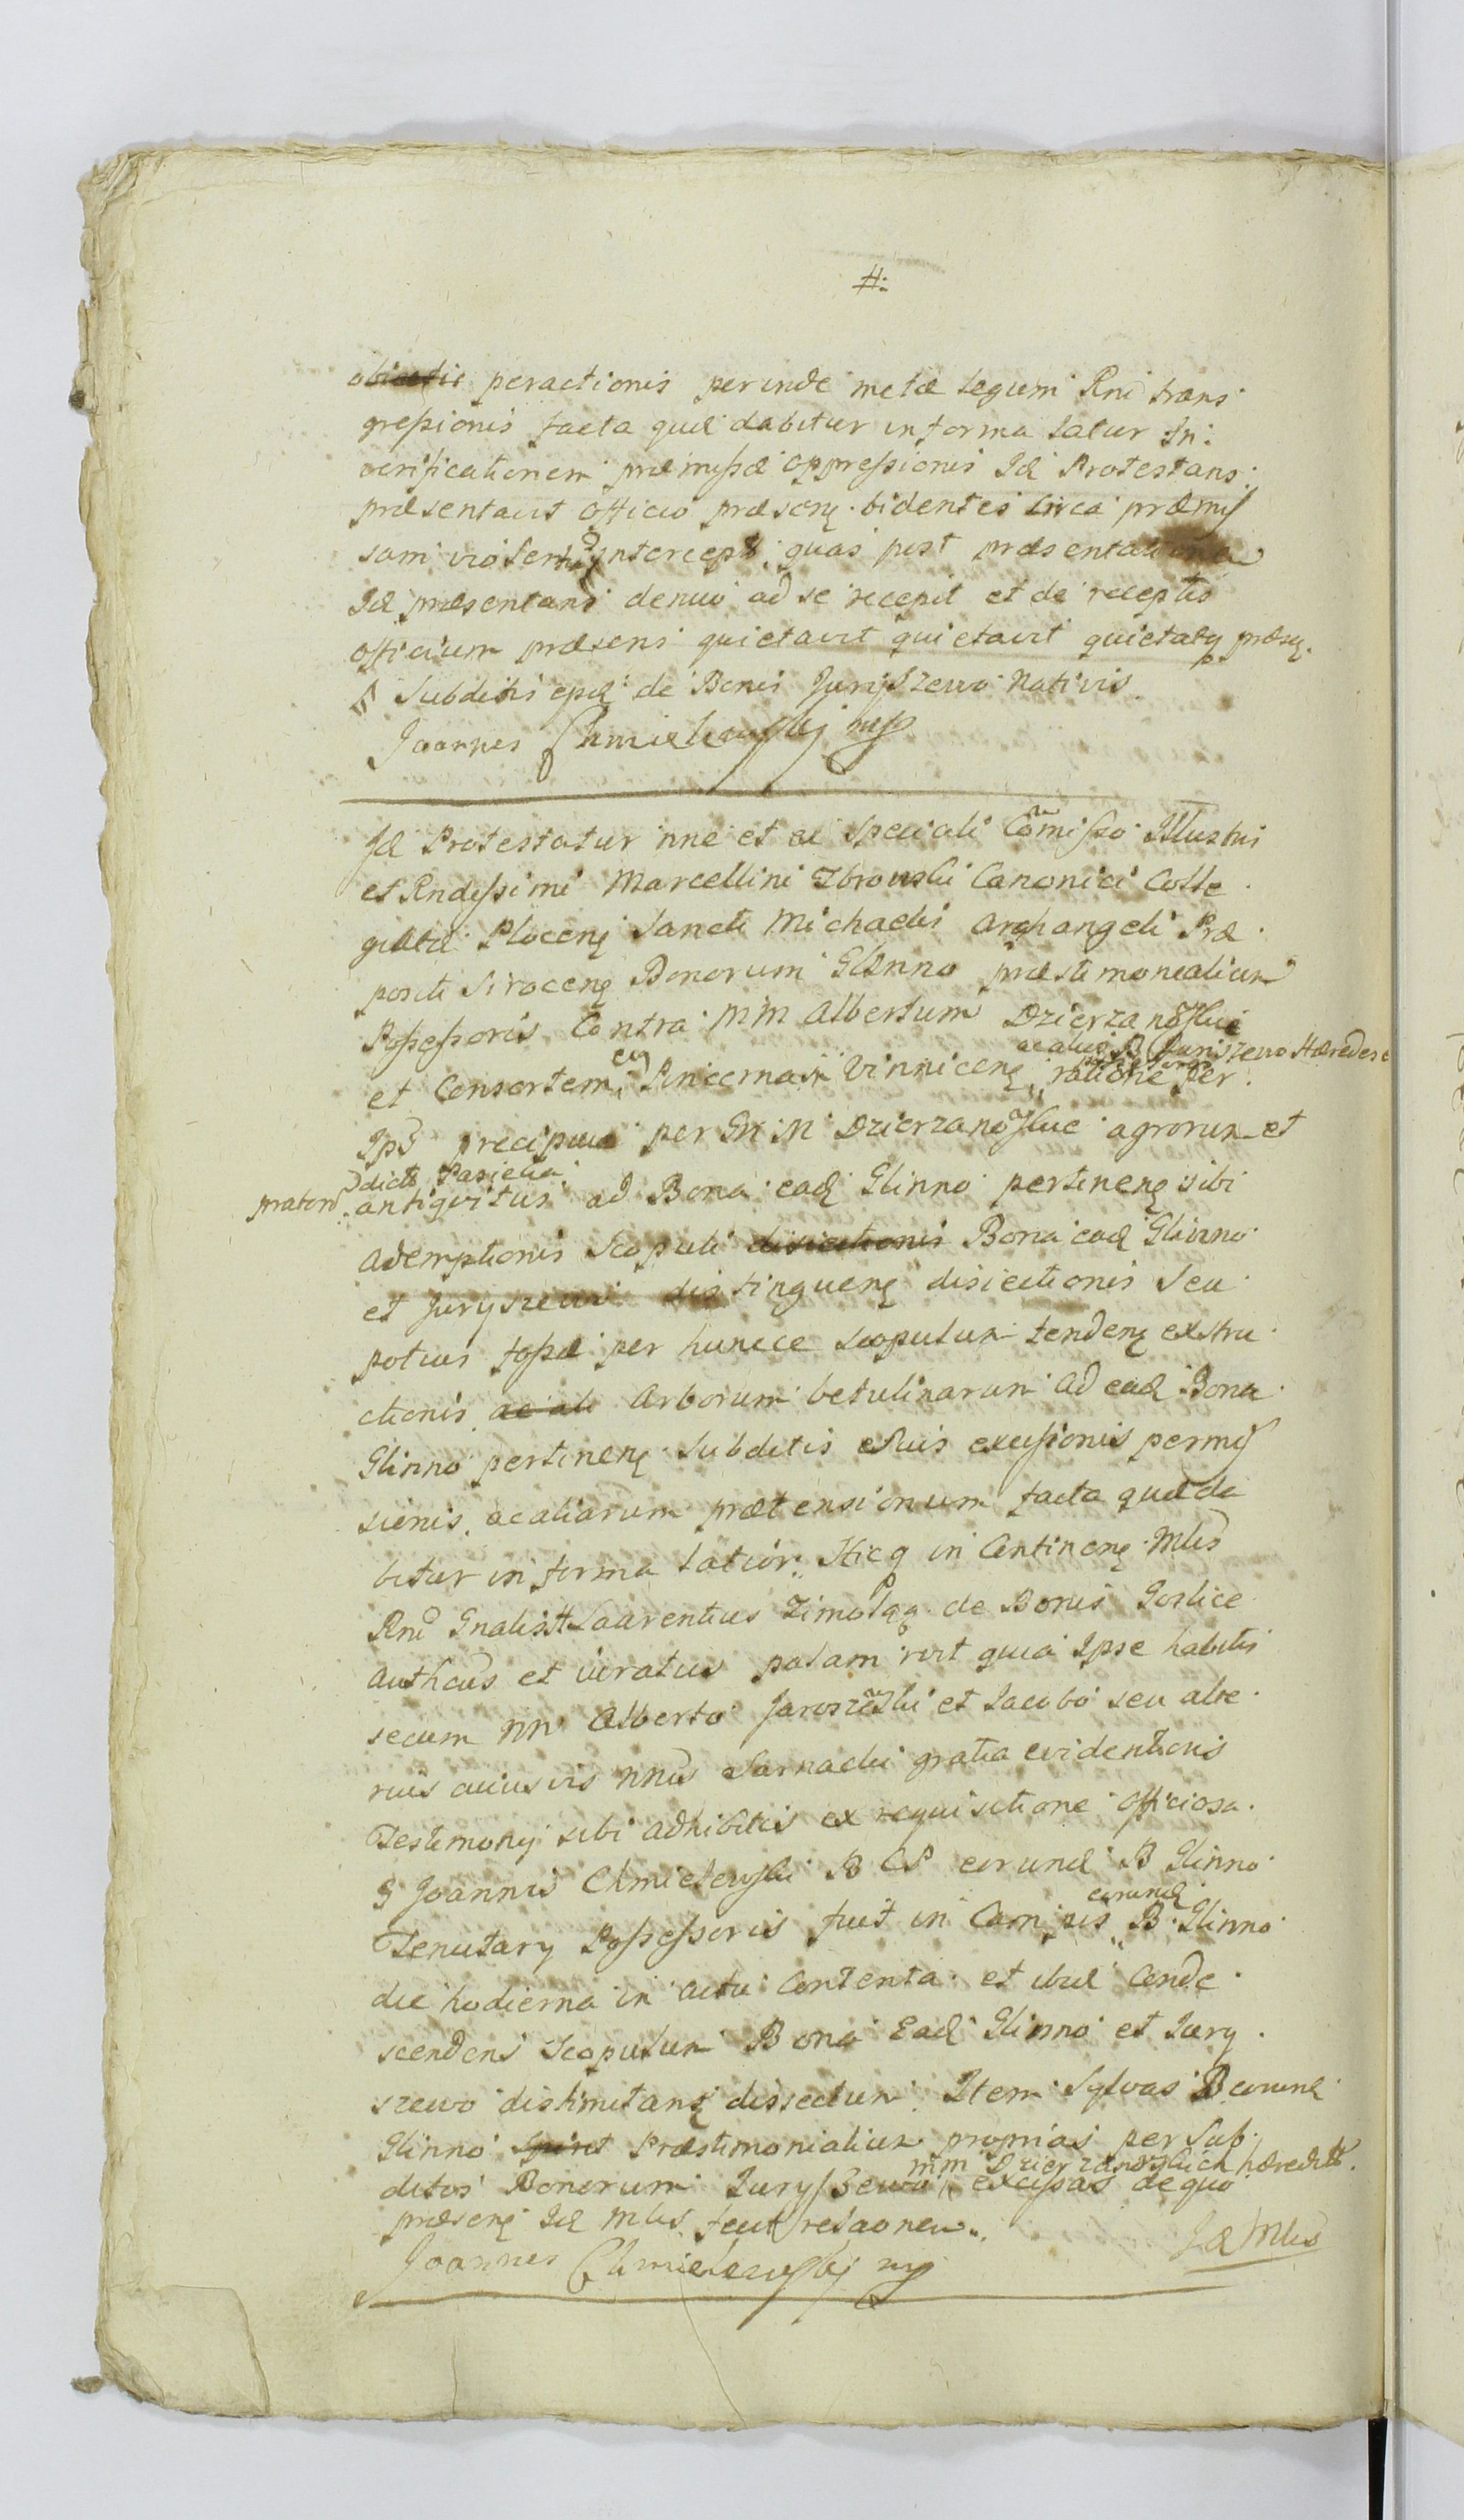 #:
peractionis perinde metæ Legum Rni trans
gressionis facta quæ dabitur in forma latiur In:
verificationem præmissæ oppressionis Id Protestans:
præsentavit officio præsenę bidentes circa præmis
sam violentią intercept. quas post præsentationem
Id præsentans denuo ad se recepit et de receptis
officium præsens quietavit quietavit quietatq præsę.
Subditis de Bonis Juryszewo Nativis
Joannes Chmielewskj mp
Id Protestatur nne et ac speciali Comisso Illustris
et Rndissimi Marcellini Zbrowski Canonici Colle
giatæ Plocenę Sancti Michaelis Archangeli Præ
positi Sirocenę Bonorum Glinno præstimonialium
Possessoris Contra MM Albertum Dzierzanoski
ac alios B Juriszewo Hæredes
et Consortem eią Pincernam Vinnicenę ratione per
Ips precipue per GM M Dzierzanoski agrorum et
pratorum dict Pasieka
antiquitus ad Bona ead Glinno pertinenę sibi
ademptionis Scopuli disiectionis Bona ead Glinno
et Juryszewo distinguenę disiectionis seu
potius fossæ per huncce scopulum tendenę exstru
ctionis ac ali Arborum betulinarum ad ead Bona
Glinno pertinenę Subditis suis excissionis permis
sionis, ac aliarum prætensionum facta quæ da
bitur in forma latior: Hicq in Continenę Mlis
Rni Gnalis Laurentius de Bonis Gorlice
authcus et iuratus palam rert quia Ipse habitis
secum NN Alberto Jaroszewski et Jacobo seu alte
rius cuiusvis nnis Sarnacki gratia evidentioris
Testimonij sibi adhibitis ex requisitione officiosa
G Joannis Chmielewski B CP eorund B Glinno
Tenutarij Possessoris fuit in Campis eorund B Glinno
die hodierna in actu Contenta et ibid Conde
scendens Scopulum Bona Ead Glinno et Jury
szewo dislimitanę dissectum Item Sylvas B eorund
Glinno Præstimonialium proprias per Sub
ditos Bonorum Juryszewo MM Dzierzanoskich hæredit. excissas de quo
præsenę Id Mlis fecit relaonem.
Id Mlis
Joannes Chmielewskj mp